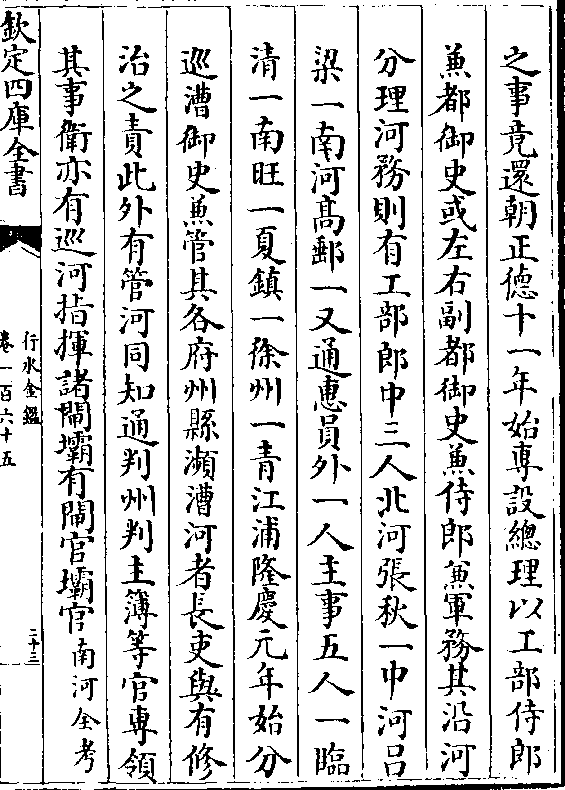 之事竟還朝正德十一年始專設總理以工部侍郎
兼都御史或左右副都御史兼侍郎兼軍務其沿河
分理河務則有工部郎中三人北河張秋一中河呂
梁一南河高郵一又通惠員外一人主事五人一臨
清一南旺一夏鎮一徐州一青江浦隆慶元年始分
巡漕御史兼管其各府州縣瀕漕河者長吏與有修
治之責此外有管河同知通判州判主簿等官專領
其事衛亦有巡河指揮諸閘壩有閘官壩官南河全考
欽定四庫全書
行水金鑑
卷一百六十五
二十三